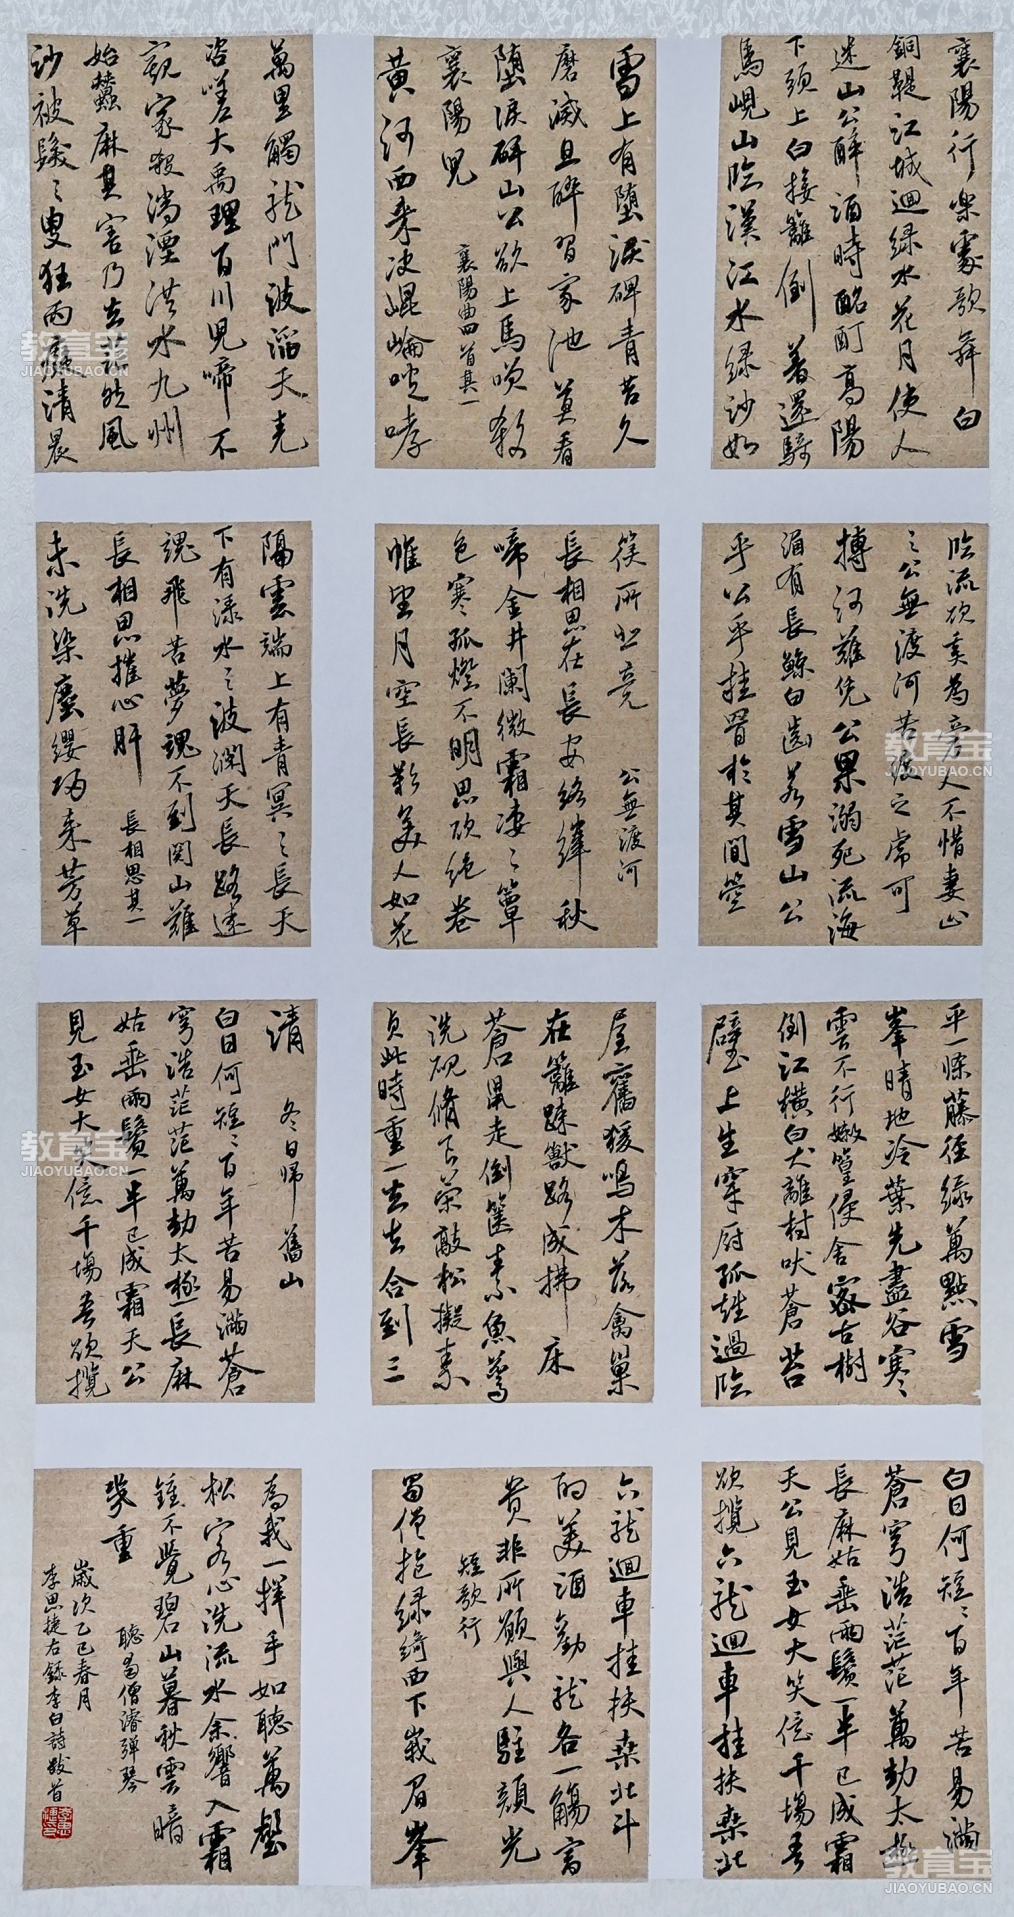 襄陽行樂處歌舞白
銅鞮江城迴綠水花月使人
迷山公醉酒時酩酊高陽
下頭上白接籬倒著還騎
馬峴山臨漢江水綠沙如
雪上有墮淚碑青苔久
磨滅且醉習家池莫看
墮淚碑山公欲上馬笑殺
襄陽兒 襄陽曲四首其一
黃河西來決崐崙咆哮
萬里觸龍門波滔天堯
咨嗟大禹理百川兒啼不
窺家殺湍湮洪水九州
始蠶麻其害乃去茫然風
沙被髮之叟狂而癡清晨
臨流欲奚為旁人不惜妻止
之公無渡河苦渡之虎可
搏河難凭公果溺死流海
湄有長鯨白齒若雪山公
乎公乎挂罥於其間箜
篌所悲竟 公無渡河
長相思在長安絡緯秋
啼金井闌微霜淒淒簟
色寒孤燈不明思欲絕卷
帷望月空長歎美人如花
隔雲端上有青冥之長天
下有淥水之波瀾天長路遠
魂飛苦夢魂不到関山難
長相思摧心肝 長相思其一
未洗染塵纓歸來芳草
平一條藤徑綠萬點雪
峯晴地冷葉先盡谷寒
雲不行嫩篁侵舍密古樹
倒江橫白犬離村吠蒼苔
壁上生穿廚孤雉過臨
屋舊猨鳴木落禽巢
在籬踈獸路成拂床
蒼鼠走倒篋素魚驚
洗硯脩良策敲松擬素
貞此時重一去去合到三
清 冬日歸舊山
白日何短短百年苦易滿蒼
穹浩茫茫萬劫太極長麻
姑垂兩鬢一半已成霜天公
見玉女大笑億千場吾欲攬
白日何短短百年苦易滿
蒼穹浩茫茫萬劫太極
長麻姑垂兩鬢一半已成霜
天公見玉女大笑億千場吾
欲攬六龍迴車挂扶桑北
六龍迴車挂扶桑北斗
酌美酒勸龍各一觴富
貴非所願與人駐顏光
短歌行
蜀僧抱綠綺西下峩眉峯
為我一揮手如聽萬壑
松客心洗流水余響入霜
鍾不覺碧山暮秋雲暗
幾重 聽蜀僧濬彈琴
歲次乙巳春月
李思捷右錄李白詩數首
教育宝
JIAOYUBAO.CN
教育宝
JIAOYUBAO.CN
教育宝
JIAOYUBAO.CN
教育宝
JIAOYUBAO.CN